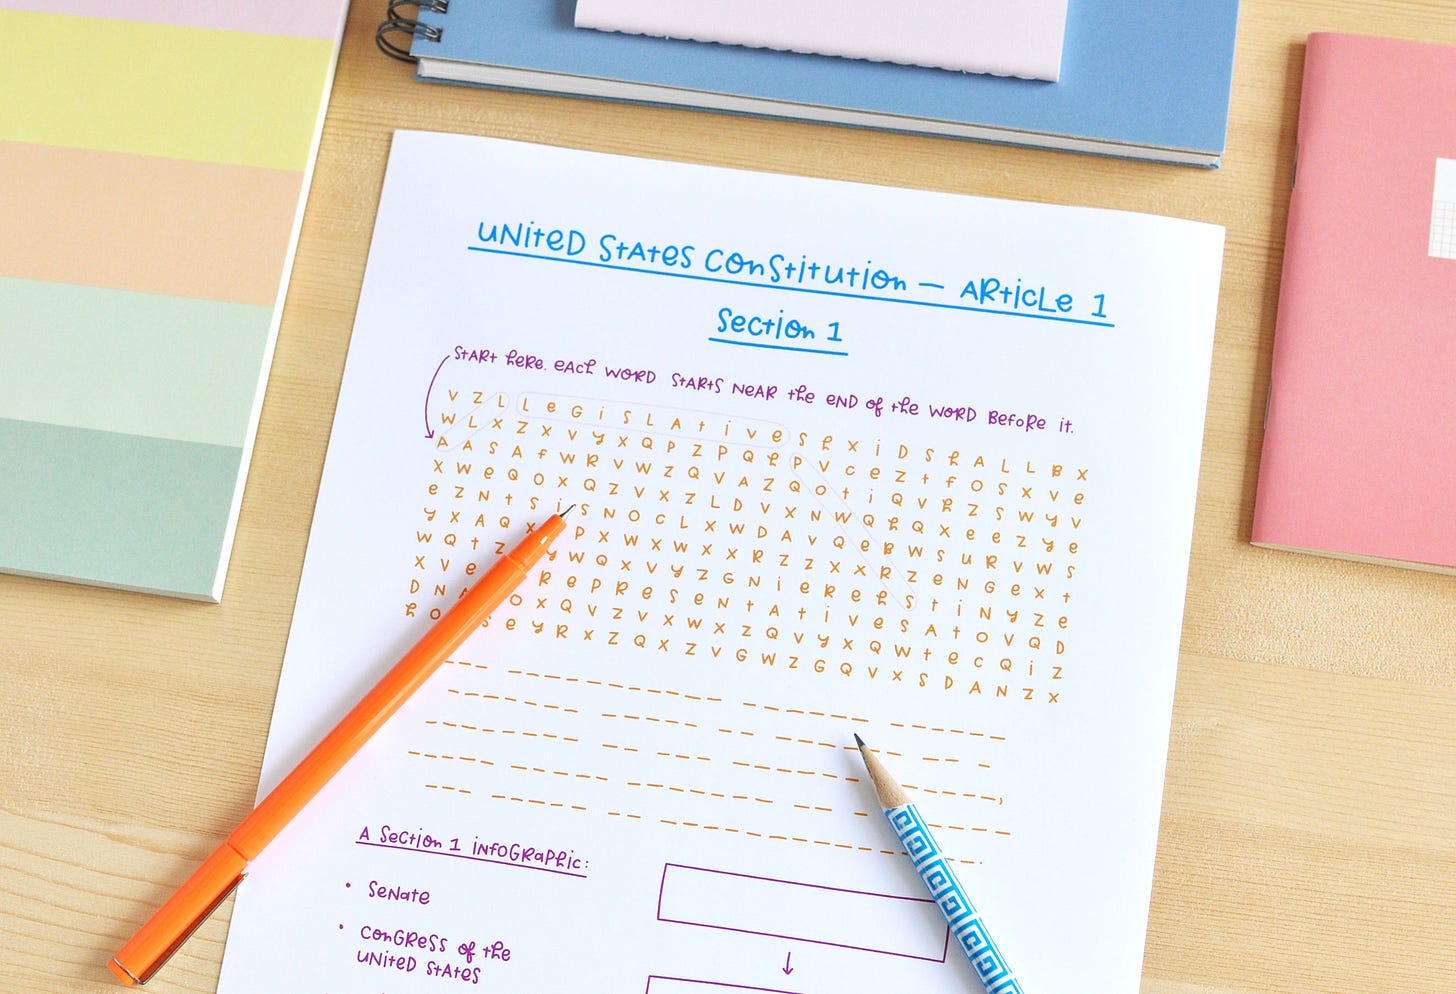 UNiteD StAteS ConStitUtion — ARticLe 1
Section 1
StARt heRe. eAch WORD StARtS NeAR the eND of the WORD BefoRe it.
V Z L L e G i S L A t i v e S h X i D S h A L L B X
W L X Z X V y X Q P Z P Q h P V c e Z t f O S X V e
A A S A f W R V W Z Q V A Z Q O t i Q V h Z S W y V
X W e Q O X Q Z V X Z L D V X N W Q h Q X e e Z y e
e Z N t S i S N O C L X W D A V Q e B W S U R V W S
y X A Q X P X W X W X X R Z Z X X R Z e N G e X t
W Q t Z y W Q X V y Z G N i e R e h S t i N y Z e
X V e R e P R e S e N t A t i V e S A t O V Q D
D N O X Q V Z V X W X Z Q V y X Q W t e C Q i Z
h O S e y R X Z Q X Z V G W Z G Q V X S D A N Z X
A Section 1 iNfoGRaPhic:
• SeNate
• conGReSS of the
UNiteD StAteS